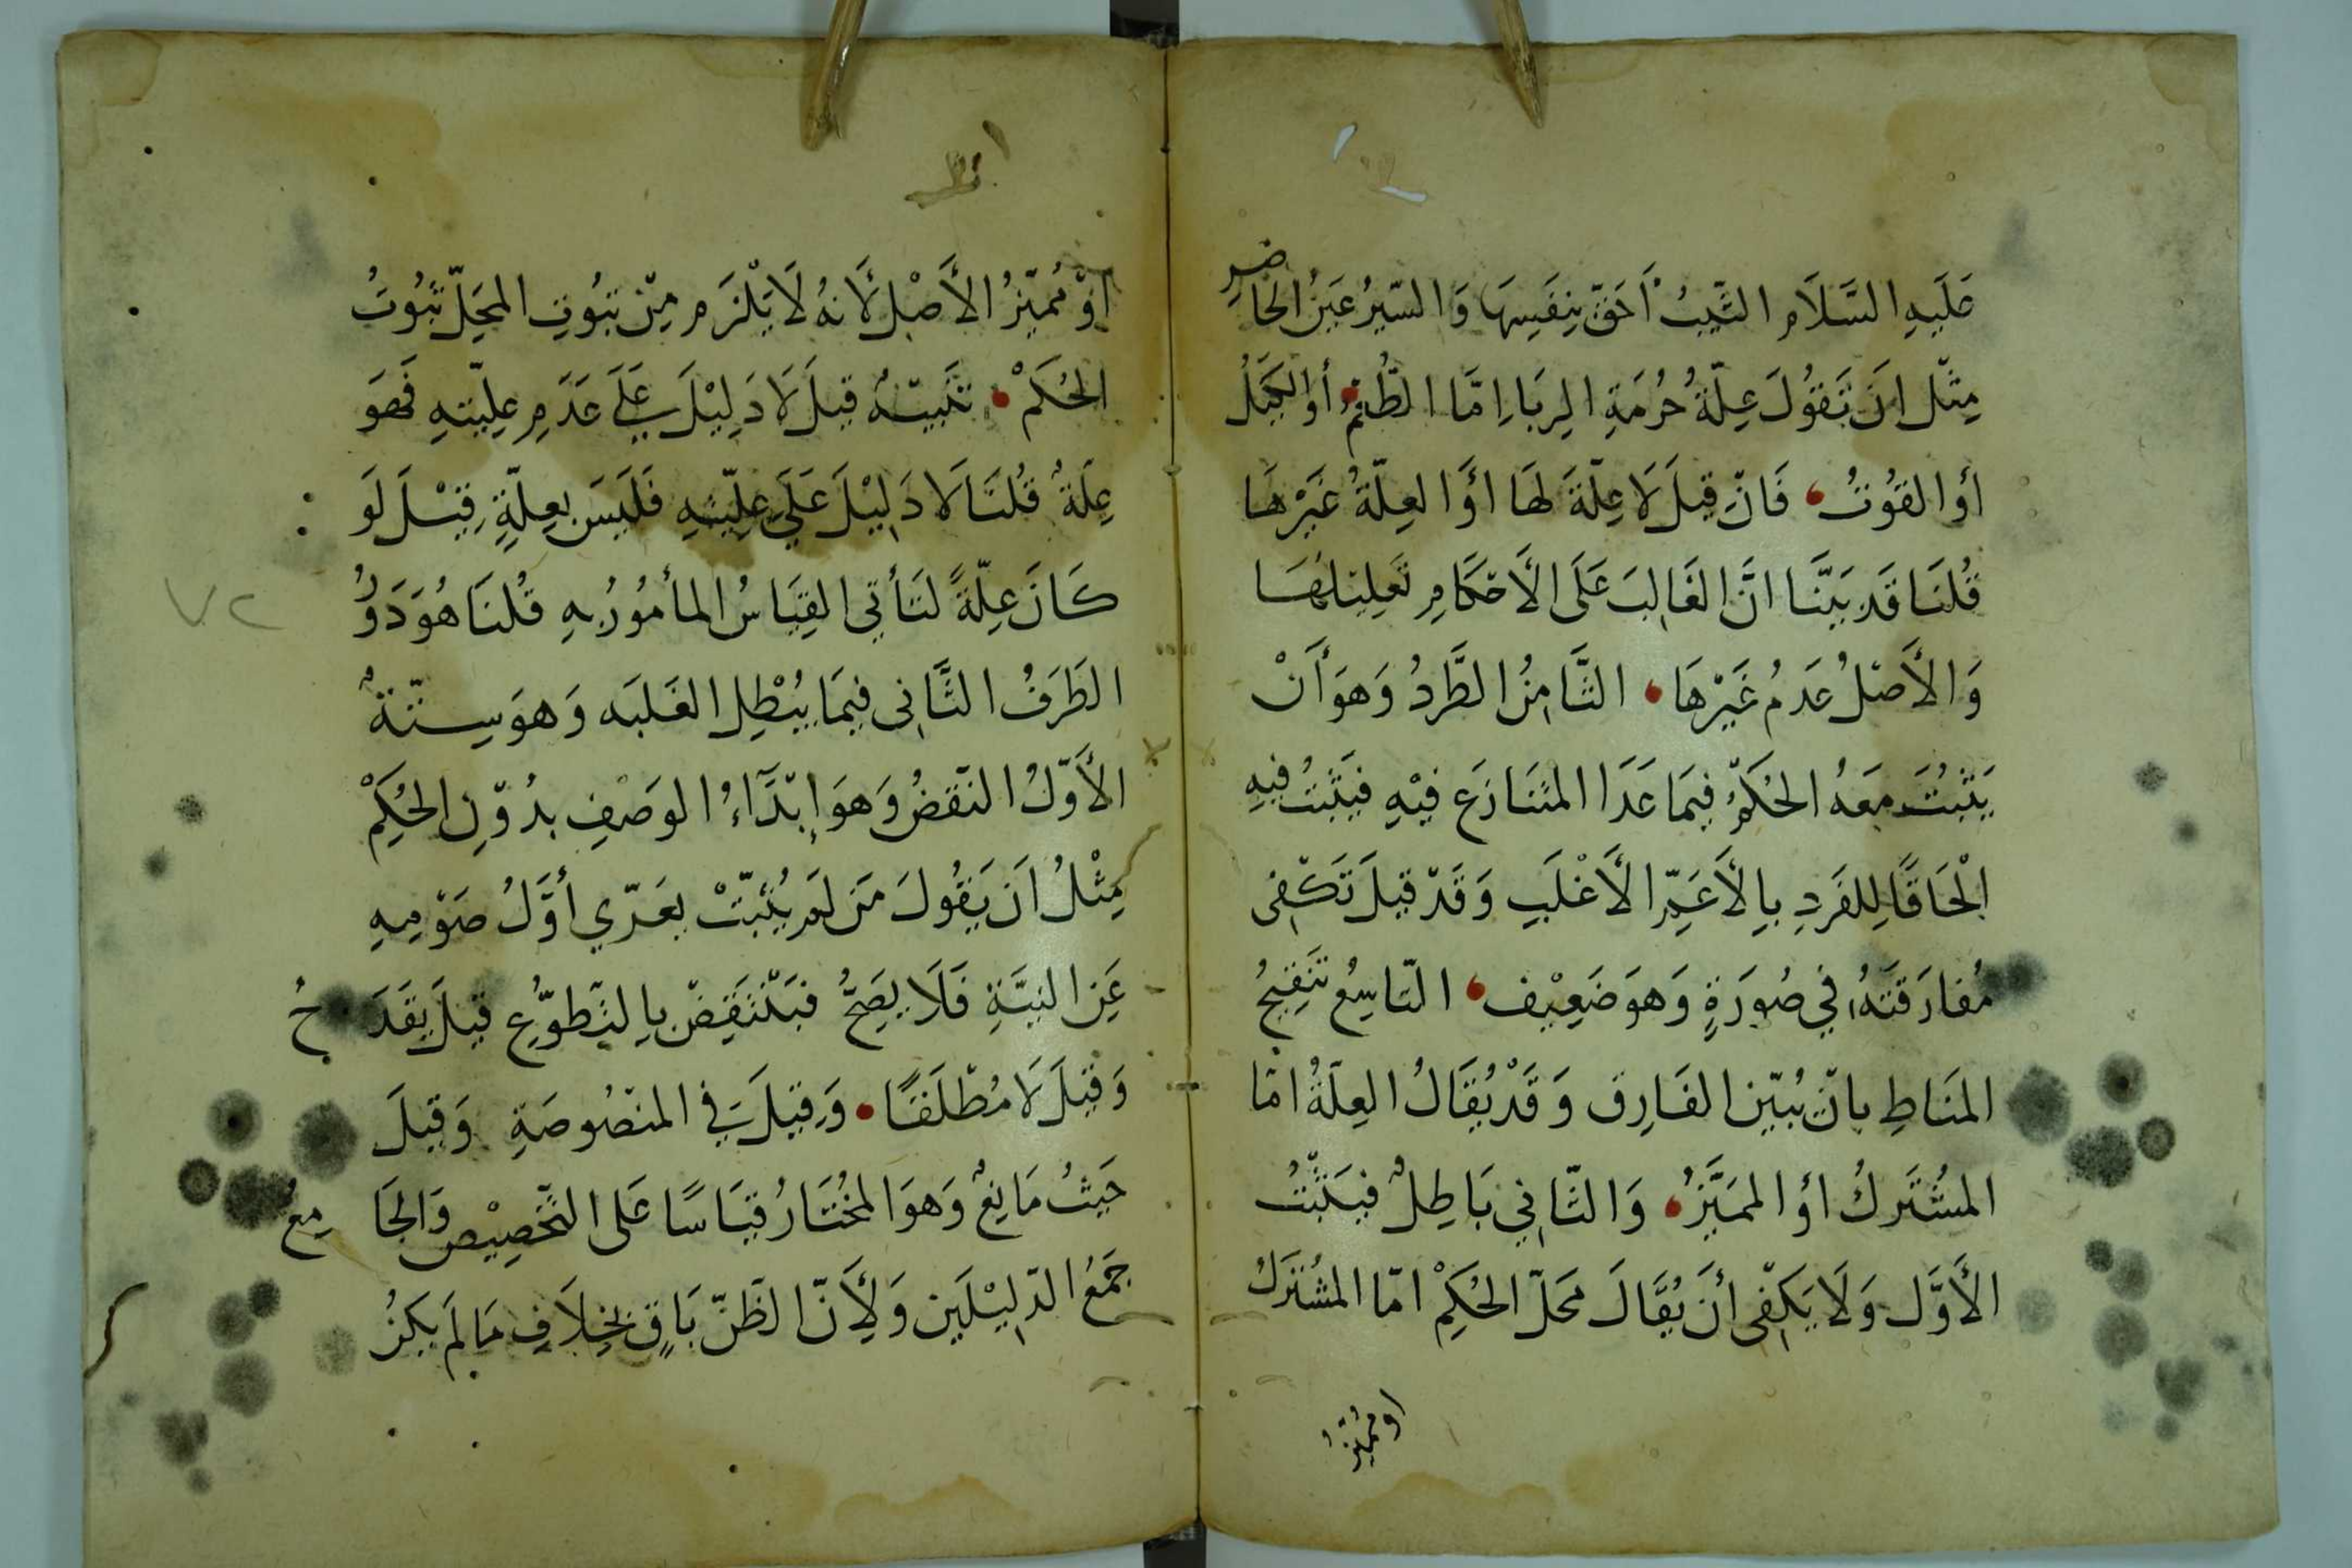 عَلَيهِ السَّلَام الثَّيِّبُ أَحَقّ بِنَفسِهَا وَالسّيرُ غَيرُ الحَاضِرِ
مِثل ان تَقُولَ عِلّةُ حُرُمَةِ الرِبَا اِمَّا الطُّعْمُ أو الكَيلُ
أو القوُتُ فَانْ قِيلَ لَا عِلّةَ لَهَا اوَ العِلّةُ غَيْرهَا
قُلنَا قَد بَيّنَّا انَّ الغَالِبَ عَلَى الأَحكَامِ تَعلِيلهَا
وَالأَصلُ عَدمُ غَيْرهَا الثَّامِنُ الطَّردُ وَهوَ أَنْ
يَثبُتَ مَعَهُ الحُكمُ فِيمَا عَدَا المتَنَازَع فِيْهِ فيَثبتُ فيهِ
الْحَاقًا لِلفَردِ بِالأَعَمِّ الأَغلَبِ وَقَدْ قِيلَ تَكفِى
مُفارَقَتهُ فِي صُورَةٍ وَهوَ ضَعِيْف التّاسِعُ تَنقِيحُ
المنَاطِ بانْ يُبيّن الفَارِق وَقَدْ يُقَالُ العِلّةُ امّا
المشُتَركُ اوُ الممَيَّزُ وَالثّانِي بَاطِلٌ فيَثبُتُ
الأَوَّل وَلَا يَكفِى أنَ يُقَالَ مَحَلّ الحُكِمْ امّا المشُتَركُ
او مُميّزُ
اوْ مُميّزُ الأَصْل لأَنهُ لَا يَلْزَم مِنْ ثبُوتِ المحَلّ ثبُوتُ
الحُكَمْ تَنبيهٌ قيلَ لَا دَلِيْلَ عَلَى عَدَمِ عِلِيّتهِ فَهوَ
عِلَةٌ قُلنَا لَا دَلِيْلَ عَلَي عِلِيّتهِ فَلَيسَ بِعِلّةٍ قِيْلَ لَو
كَانَ عِلّةً لتَأتى القِيَاسُ المأمُورُ بهِ قُلنَا هُوَ دَوْرٌ
الطَرَفُ الثَّانِى فِيمَا يُبْطِل الغَلبَه وَهوَ سِتّةٌ
الأَوّلُ النّقضُ وَهوَ اِبْدَآءُ الوَصْفِ بدُوْنِ الحُكِمْ
مِثْلُ اَن يَقُولَ مَن لَم يُبَيّتْ بعَرّي أوَّلُ صَوْمِهِ
عَنِ النيَّةِ فَلَا يصَحُّ فيَنتَقِضْ بِالتّطوُّعِ قِيلَ يَقدَحُ
وَقِيْلَ لَا مُطْلَقًا وَقِيْلَ فِي المنْصُوصَةِ وَقِيلَ
حَيثُ مَانِعٌ وَهوَ المخُتَارُ قيَاسًا عَلى التّخصِيْص وَالجَامِعُ
جَمعُ الدّلِيْلَين وَلِأَنّ الظَنّ بَاقٍ بِخِلَافِ مَا لَم يكنُ